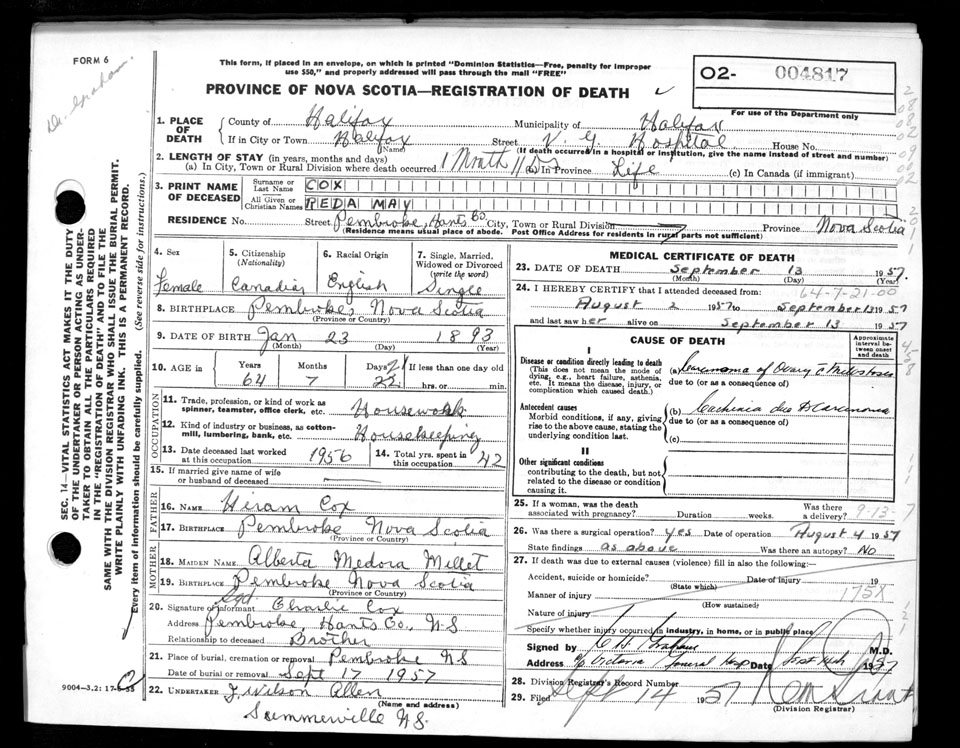 FORM 6
Dr. Graham
This form, if placed in an envelope, on which is printed "Dominion Statistics—Free, penalty for improper
use $50," and properly addressed will pass through the mail "FREE"
PROVINCE OF NOVA SCOTIA—REGISTRATION OF DEATH
O2- 004817
For use of the Department only
1. PLACE OF DEATH
County of Halifax Municipality of Halifax
If in City or Town Halifax Street V. G. Hospital House No.
(Name) (If death occurred in a hospital or institution, give the name instead of street and number)
2. LENGTH OF STAY (in years, months and days)
(a) In City, Town or Rural Division where death occurred 1 Month 11 Dys (b) In Province Life (c) In Canada (if immigrant)
3. PRINT NAME OF DECEASED
Surname or Last Name COX
All Given or Christian Names REDA MAY
RESIDENCE No. Street Pembroke, Hants Co. City, Town or Rural Division Province Nova Scotia
(Residence means usual place of abode. Post Office Address for residents in rural parts not sufficient)
4. Sex
Female
5. Citizenship
(Nationality)
6. Racial Origin
English
7. Single, Married, Widowed or Divorced
(write the word)
Single
8. BIRTHPLACE Pembroke, Nova Scotia
(Province or Country)
9. DATE OF BIRTH Jan 23 1893
(Month) (Day) (Year)
10. AGE in Years Months Days If less than one day old
64 7 21 22 hrs. or min.
OCCUPATION
11. Trade, profession, or kind of work as
spinner, teamster, office clerk, etc. Housework
12. Kind of industry or business, as cotton-
mill, lumbering, bank, etc. Housekeeping
13. Date deceased last worked at this occupation 1956 14. Total yrs. spent in this occupation 42
15. If married give name of wife
or husband of deceased
FATHER
16. NAME Hiram Cox
17. BIRTHPLACE Pembroke Nova Scotia
(Province or Country)
MOTHER
18. MAIDEN NAME Alberta Medora Millet
19. BIRTHPLACE Pembroke Nova Scotia
(Province or Country)
20. Sgd
Signature of informant Charlie Cox
Address Pembroke, Hants Co., N-S
Relationship to deceased Brother
21. Place of burial, cremation or removal Pembroke NS
Date of burial, cremation or removal Sept 17 1957
22. UNDERTAKER J. Wilson Allen
(Name and address)
Summerville NS.
MEDICAL CERTIFICATE OF DEATH
23. DATE OF DEATH September 13 1957.
(Month) (Day) (Year)
64-7-21-00
24. I HEREBY CERTIFY that I attended deceased from:
August 2 1957 to September 13 1957
and last saw her alive on September 13 1957
CAUSE OF DEATH
Approximate interval between onset and death
I
Disease or condition directly leading to death
(This does not mean the mode of
dying, e.g., heart failure, asthenia,
etc. It means the disease, injury, or
complication which caused death.)
(a) Carcinoma of Ovary
due to (or as a consequence of)
Antecedent causes
Morbid conditions, if any, giving
rise to the above cause, stating the
underlying condition last.
(b) due to Carcinoma
due to (or as a consequence of)
(c)
II
Other significant conditions
contributing to the death, but not
related to the disease or condition
causing it.
25. If a woman, was the death associated with pregnancy? Duration weeks. Was there a delivery? 9-13-
26. Was there a surgical operation? yes Date of operation August 4 1957
State findings as above Was there an autopsy? No
27. If death was due to external causes (violence) fill in also the following:—
Accident, suicide or homicide? Date of injury 19
(State which)
Manner of injury 175X
(How sustained)
Nature of injury
Specify whether injury occurred in industry, in home, or in public place
Signed by Graham M.D.
Address Victoria General Hosp Date 1957
28. Division Registrar's Record Number
29. Filed Sept 14 1957
(Division Registrar)
SEC. 14—VITAL STATISTICS ACT MAKES IT THE DUTY
OF THE UNDERTAKER OR PERSON ACTING AS UNDER-
TAKER TO OBTAIN ALL THE PARTICULARS REQUIRED
IN THE "REGISTRATION OF DEATH" AND TO FILE THE
SAME WITH THE DIVISION REGISTRAR WHO SHALL ISSUE THE BURIAL PERMIT.
WRITE PLAINLY WITH UNFADING INK. THIS IS A PERMANENT RECORD.
Every item of information should be carefully supplied. (See reverse side for instructions.)